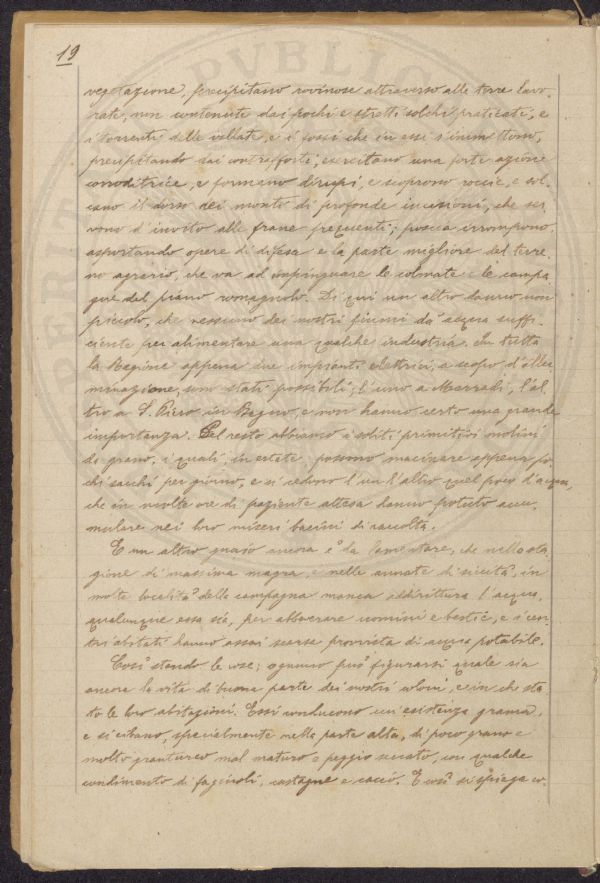 19
vegetazione, precipitano rovinose attraverso alle terre lavo-
rate, non contenute dai pochi e stretti solchi praticati, e
i torrenti delle vallate, e i fossi che in essi s'immettono,
precipitando dai contrafforti, esercitano una forte azione
corroditrice, e formano dirupi, e scoprono roccie, e sol-
cano il dorso dei monti di profonde incisioni, che ser-
vono d'invito alle frane frequenti; poscia irrompono,
asportando opere di difesa e la parte migliore del terre-
no agrario, che va ad impinguare le colmate e le campa-
gne del piano romagnolo. Di qui un altro danno non
piccolo, che nessuno dei nostri fiumi dà acqua suffi-
ciente per alimentare una qualche industria. In tutta
la Regione appena due impianti elettrici, a scopo d'illu-
minazione, sono stati possibili; l'uno a Marradi, l'al-
tro a S. Piero in Bagno, e non hanno certo una grande
importanza. Pel resto abbiamo i soliti primitivi molini
da grano, i quali, in estate, possono macinare appena po-
chi sacchi per giorno, e si cedono l'un l'altro quel poco d'acqua,
che in molte ore di paziente attesa hanno potuto accu-
mulare nei loro miseri bacini di raccolta.
E un altro guaio ancora è da lamentare, che nella sta-
gione di massima magra, e nelle annate di siccità, in
molte località della campagna manca addirittura l'acqua,
qualunque essa sia, per abbeverare uomini e bestie, e i cen-
tri abitati hanno assai scarsa provvista di acqua potabile.
Così stando le cose, ognuno può figurarsi quale sia
ancora la vita di buona parte dei nostri coloni, e in che sta-
to le loro abitazioni. Essi conducono un'esistenza grama,
e si cibano, specialmente nella parte alta, di poco grano e
molto granturco mal maturo e peggio seccato, con qualche
condimento di fagiuoli, castagne e cacio. E così si spiega co-